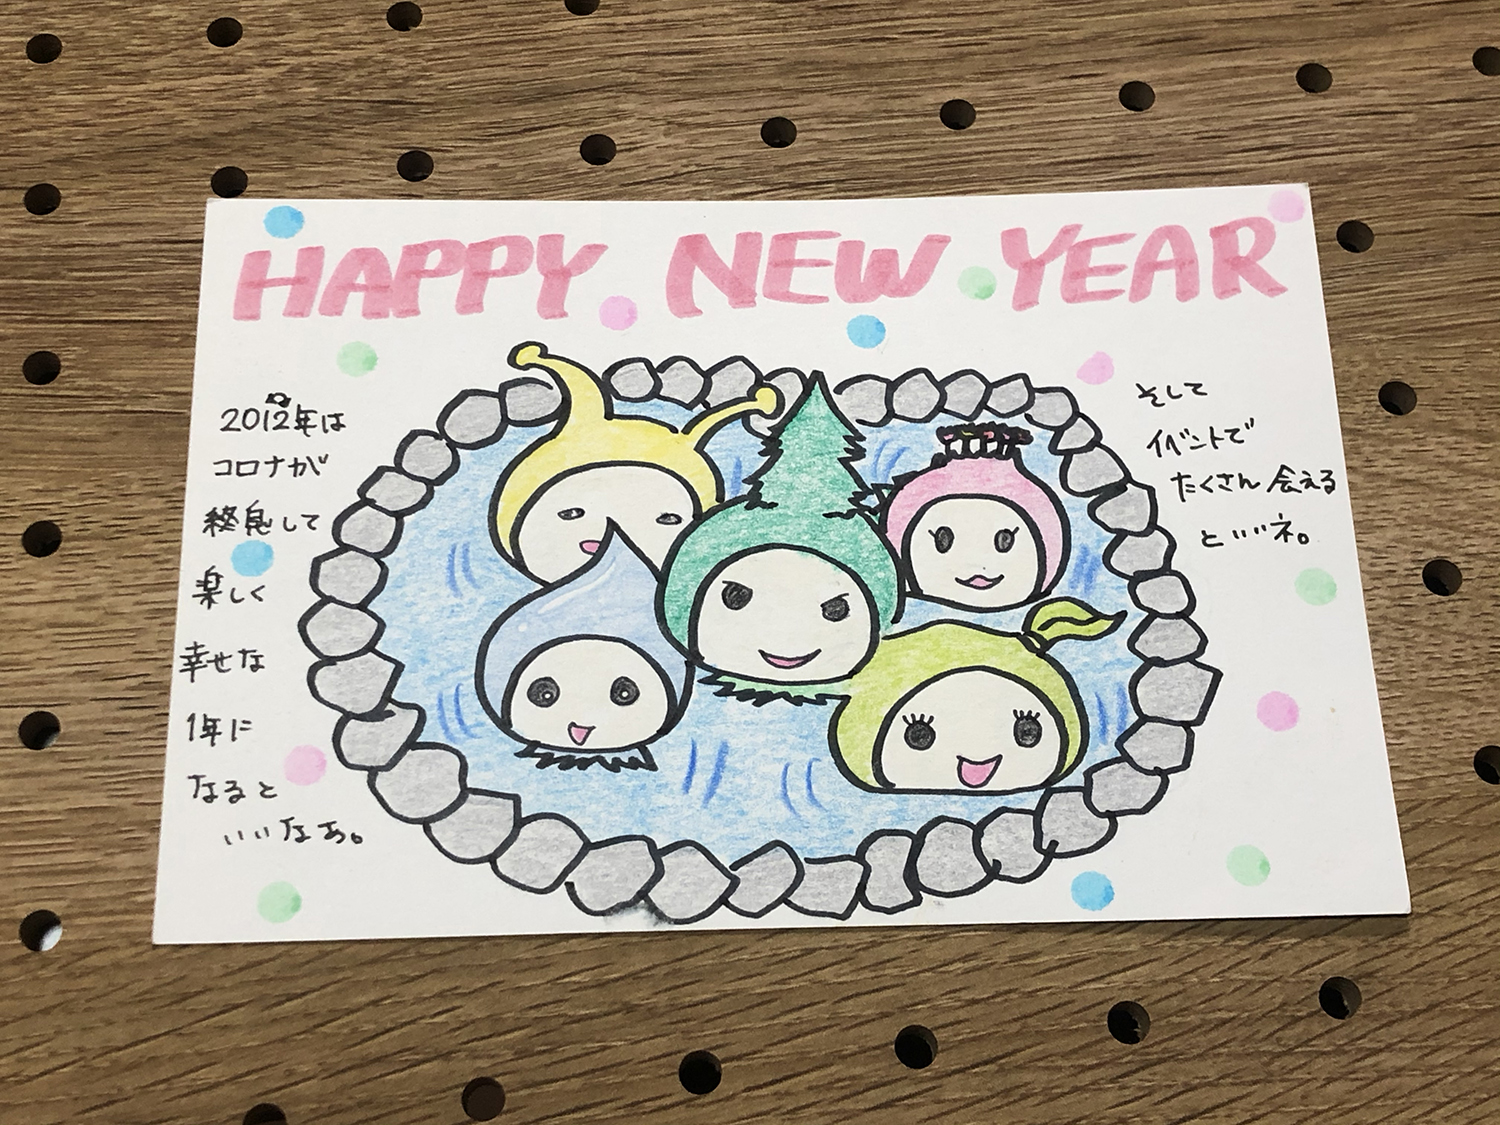 HAPPY NEW YEAR
2012年は
コロナが
終息して
楽しく
幸せな
1年に
なると
いいなぁ。
そして
イベントで
たくさん会える
といいネ。